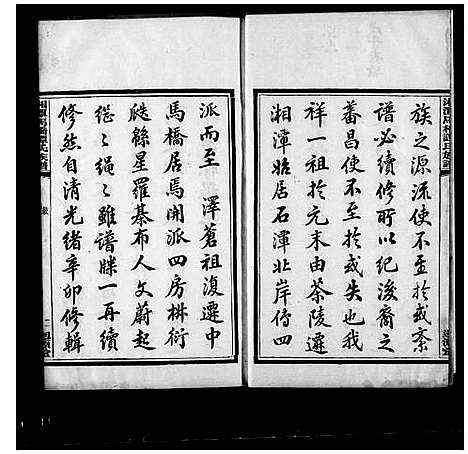 族之源流使不至於或紊
譜必續修所以紀後裔之
蕃昌使不至於或失也我
祥一祖於元末由茶陵遷
湘潭始居石潭北岸傳四
派而至 澤蒼祖復遷中
馬橋居馬開派四房椒衍
瓞緜星羅棊布人文蔚起
繼繼繩繩雖譜牒一再續
修然自清光緒辛卯修輯